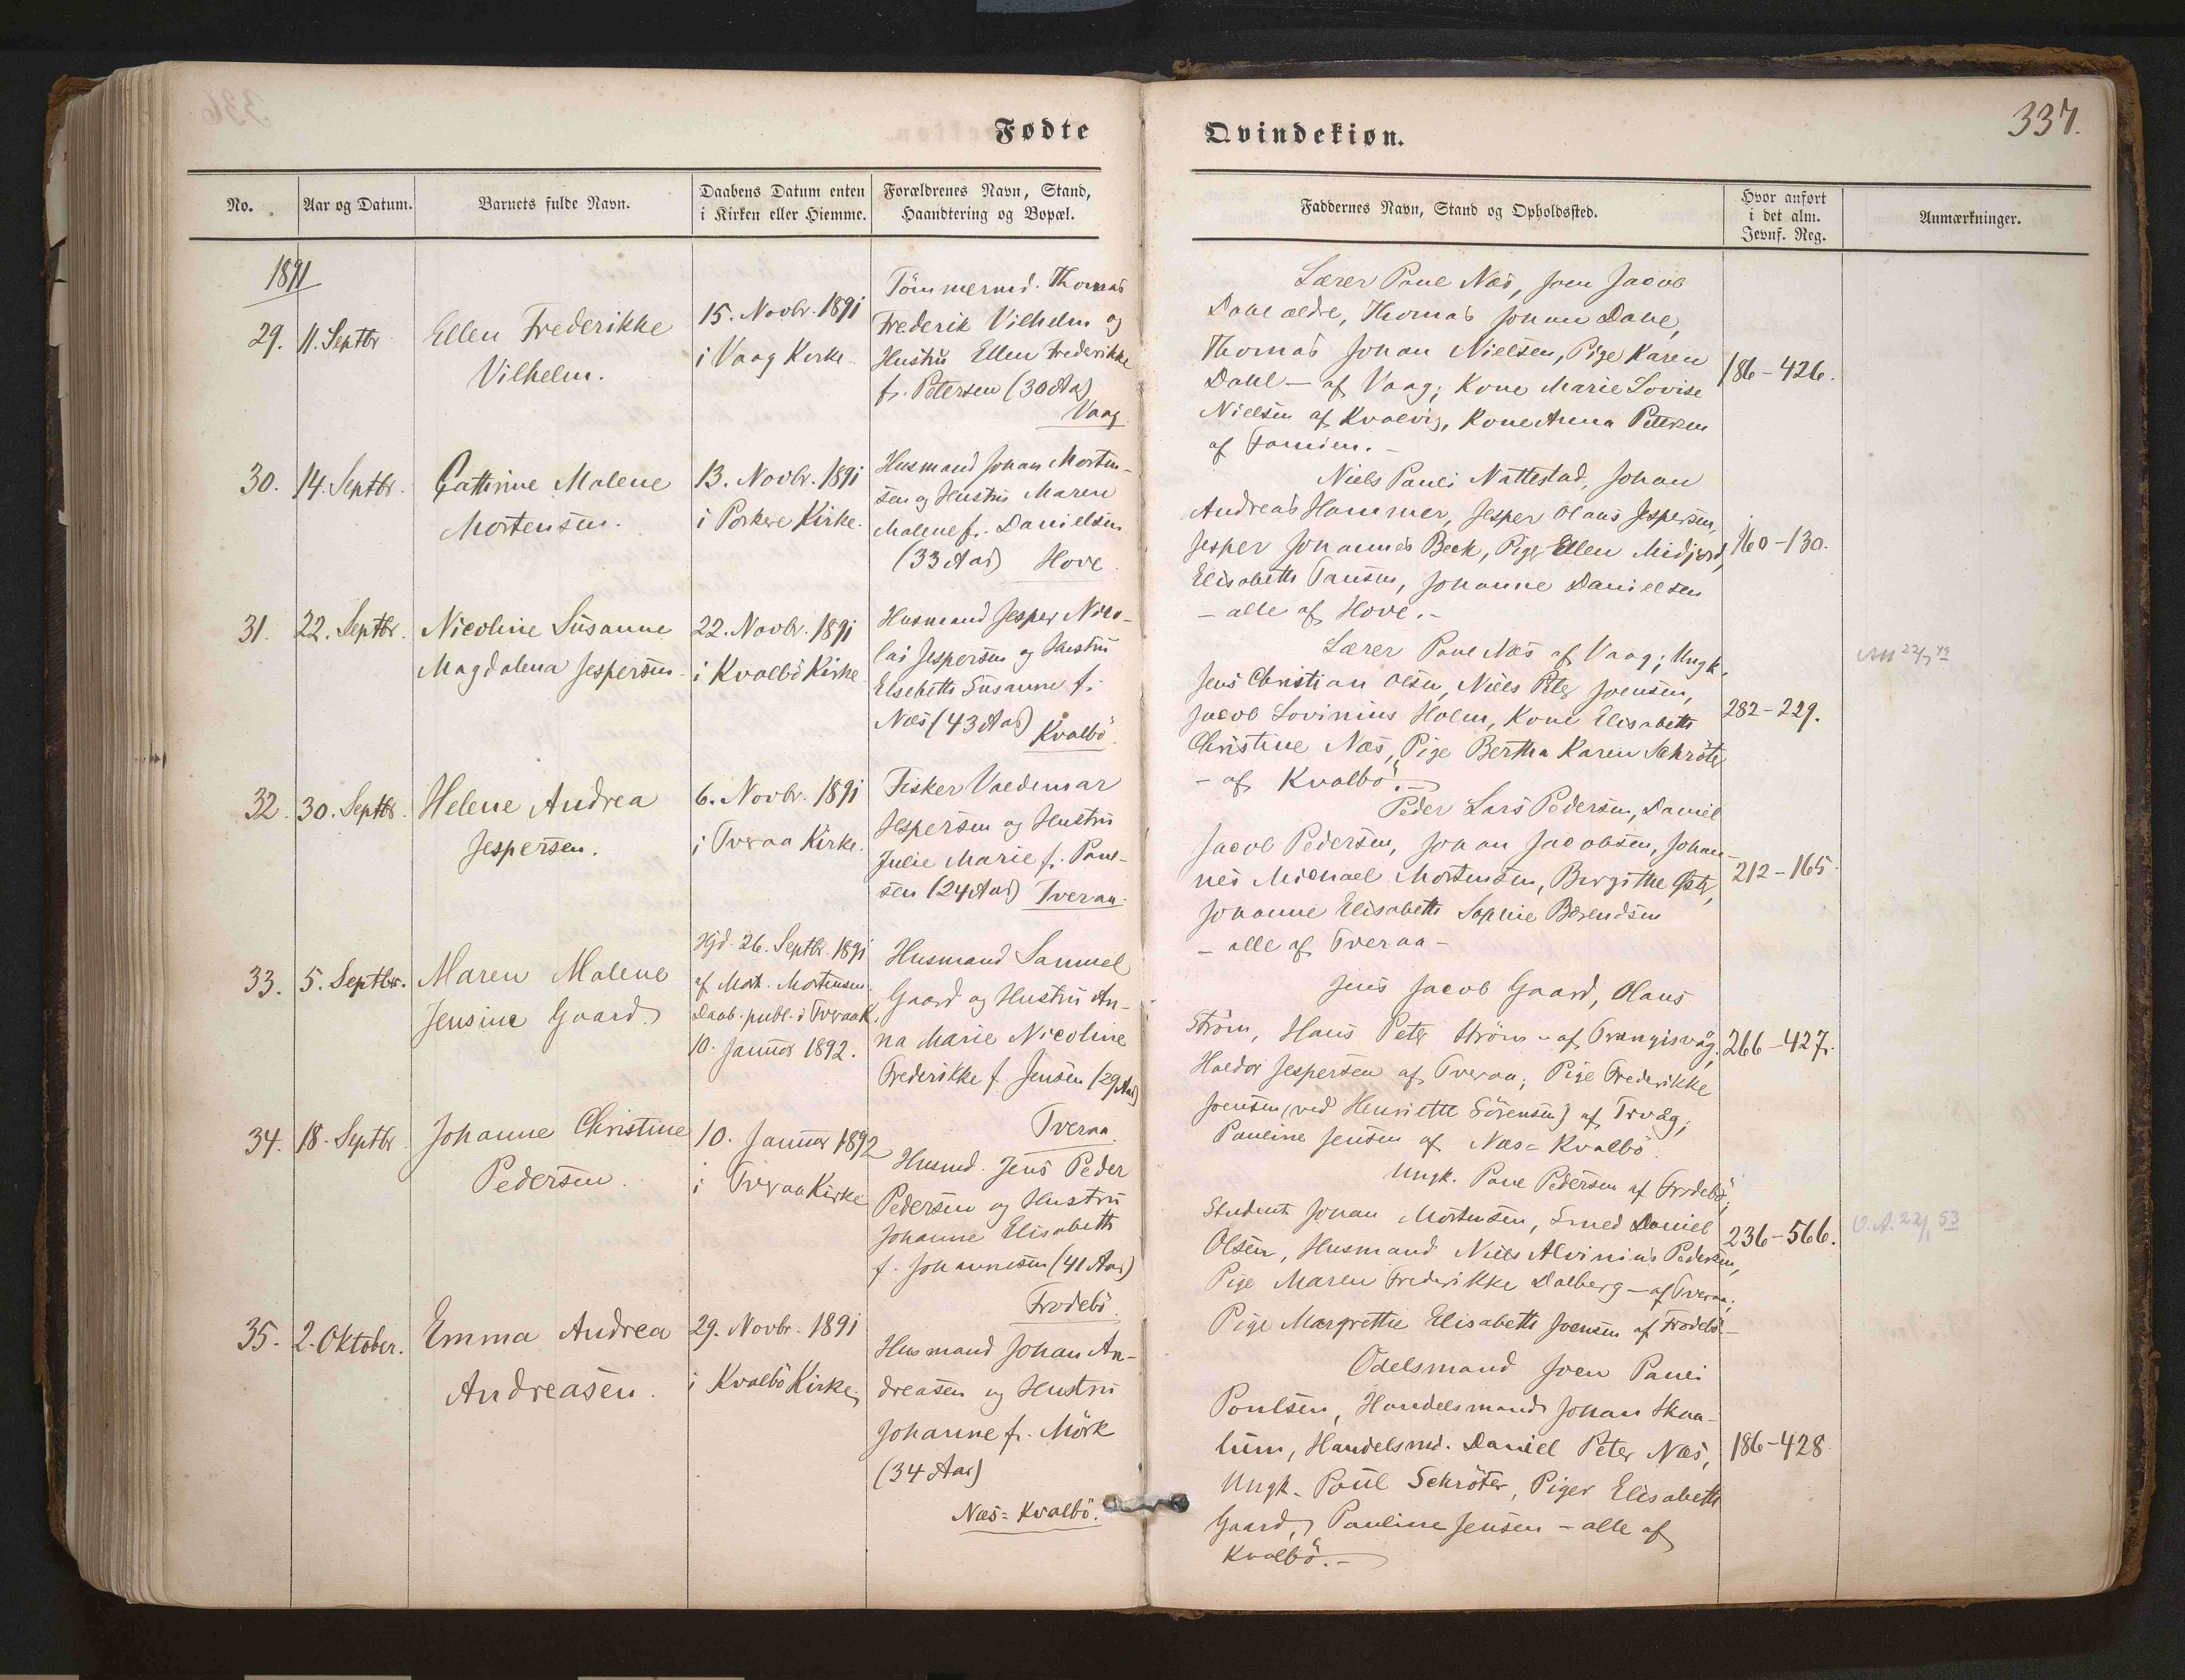 337.
Fødte
Qvindekiøn.
No.
Aar og Datum.
Barnets fulde Navn.
Daabens Datum enten
i Kirken eller Hiemme.
Forældrenes Navn, Stand,
Haandtering og Bopæl.
Faddernes Navn, Stand og Opholdssted.
Hvor anført
i det alm.
Jevnf. Reg.
Anmærkninger.
1891
29.
11. Septbr
Ellen Frederikke
Vilhelm.
15. Novbr. 1891
i Vaag Kirke
Tömmermd. Thomas
Frederik Vilhelm og
Hustru Ellen Frederikke
f. Petersen (30 Aar)
Vaag
Lærer Poul Næs, Joen Jacob
Dahl ældre, Thomas Johan Dahl,
Thomas Johan Nielsen, Pige Karen
Dahl - af Vaag; Kone Marie Lovise
Nielsen af Kvalvig, Kone Anna Petersen
af Famien. -
186-426.
30.
14. Septbr.
Cathrine Malene
Mortensen.
13. Novbr. 1891
i Porkere Kirke.
Husmand Johan Morten-
sen og Hustru Maren
Malene f. Danielsen
(33 Aar) Hove.
Niels Pauli Nattestad, Johan
Andreas Hammer, Jesper Olaus Jespersen,
Jesper Johannes Beck, Piger Ellen Midjord,
Elisabeth Pausen, Johanne Danielsen
- alle af Hove. -
160-130.
31.
22. Septbr.
Nicoline Susanne
Magdalena Jespersen.
22. Novbr. 1891
i Kvalbö Kirke
Husmand Jesper Nico-
lai Jespersen og Hustru
Elsebeth Susanne f.
Næs (43 Aar) Kvalbö.
Lærer Poul Næs af Vaag; Ungk.
Jens Christian Olsen, Niels Peter Joensen,
Jacob Lovinius Holm, Kone Elisabeth
Christine Næs, Pige Bertha Karen Schröter
- af Kvalbö. -
282-229.
32.
30. Septbr.
Helene Andrea
Jespersen.
6. Novbr. 1891
i Tveraa Kirke.
Fisker Valdemar
Jespersen og Hustru
Julie Marie f. Poul-
sen (24 Aar) Tveraa.
Peder Lars Pedersen, Daniel
Jacob Pedersen, Johan Jacobsen, Johan-
nes Michael Mortensen, Birgithe Øster,
Johanne Elisabeth Sophie Berendsen
- alle af Tveraa -
212-165.
33.
5. Septbr.
Maren Malene
Jensine Gaard.
Hjd. 26. Septbr. 1891
af Mort. Mortensen.
Daab. publ. i Tveraa K.
10. Januar 1892.
Husmand Samuel
Gaard og Hustru An-
na Marie Nicoline
Frederikke f. Jensen (29 Aar)
Tveraa
Jens Jacob Gaard, Olaus
Ström, Hans Peter Ström - af Trangisvåg;
Haldor Jespersen af Tveraa; Pige Frederikke
Joensen (ved Henriette Sörensen) af Trvåg;
Pauline Jensen af Næs=Kvalbö.
266-427.
34.
18. Septbr
Johanne Christine
Pedersen.
10. Januar 1892
i Tveraa Kirke
Husmd. Jens Peder
Pedersen og Hustru
Johanne Elisabeth
f. Johannesen (41 Aar)
Frodebö.
Ungk. Poul Pedersen af Frodebö;
Student Johan Mortensen, Smed Daniel
Olsen, Husmand Niels Alvinius Pedersen,
Pige Maren Frederikke Dalberg - af Tveraa;
Pige Margrethe Elisabeth Joensen af Frodebö -
236-566.
V.A. 22/1 53
35.
2. Oktober.
Emma Andrea
Andreasen.
29. Novbr. 1891
i Kvalbö Kirke.
Husmand Johan An-
dreasen og Hustru
Johanne f. Mörk
(34 Aar)
Næs=Kvalbö.
Odelsmand Joen Pauli
Poulsen, Handelsmand Johan Skaa-
lum, Handelsmd. Daniel Peter Næs,
Ungk. Poul Schröter, Piger Elisabeth
Gaard, Pauline Jensen - alle af
Kvalbö. -
186-428.